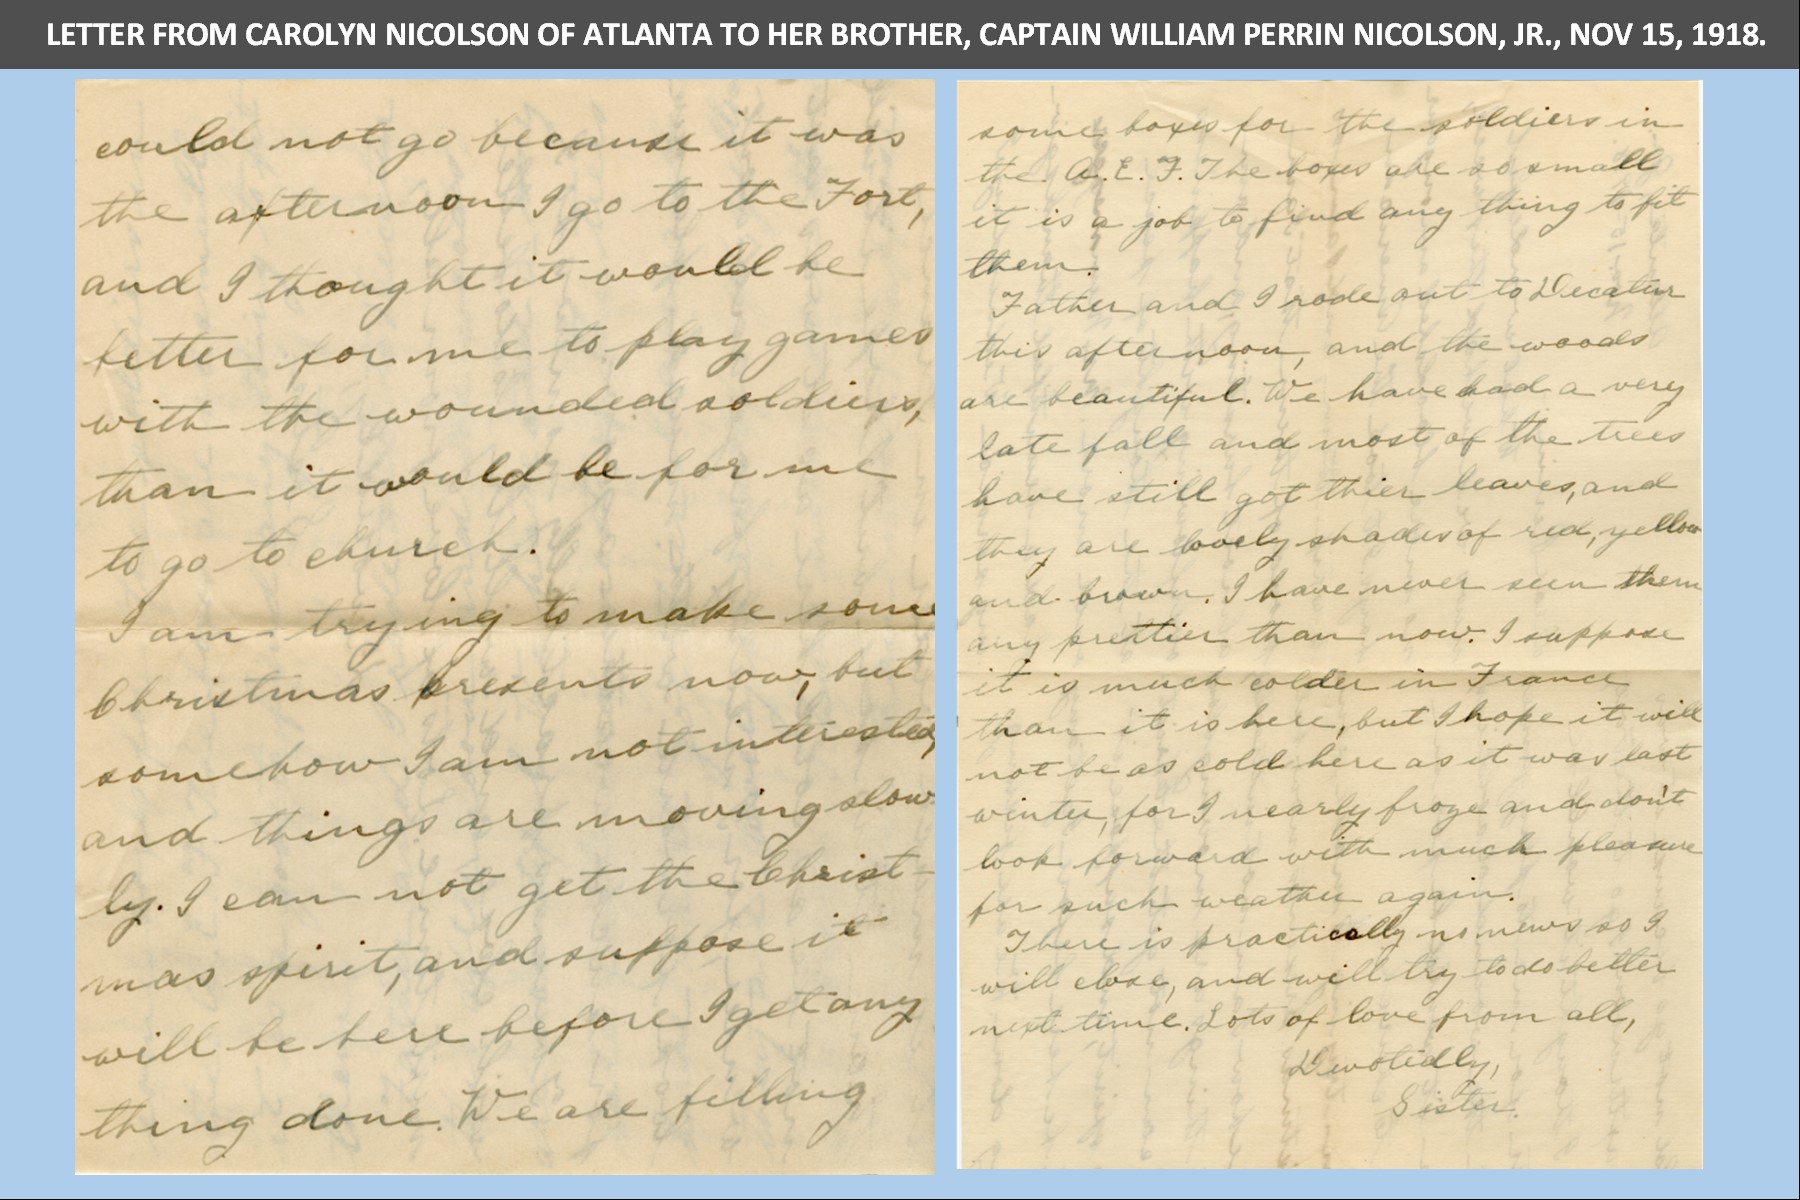 LETTER FROM CAROLYN NICOLSON OF ATLANTA TO HER BROTHER, CAPTAIN WILLIAM PERRIN NICOLSON, JR., NOV 15, 1918.
could not go because it was
the afternoon I go to the Fort,
and I thought it would be
better for me to play games
with the wounded soldiers,
than it would be for me
to go to church.
I am trying to make some
Christmas presents now, but
somehow I am not interested,
and things are moving slow
ly. I can not get the Christ-
mas spirit, and suppose it
will be here before I get any
thing done. We are filling
some boxes for the soldiers in
the A. E. F. The boxes are so small
it is a job to find any thing to fit
them.
Father and I rode out to Decatur
this afternoon, and the woods
are beautiful. We have had a very
late fall and most of the trees
have still got thier leaves, and
they are lovely shades of red, yellow
and brown. I have never seen them
any prettier than now. I suppose
it is much colder in France
than it is here, but I hope it will
not be as cold here as it was last
winter, for I nearly froze and don't
look forward with much pleasure
for such weather again.
There is practically no news so I
will close, and will try to do better
next time. Lots of love from all,
Devotedly,
Sister.